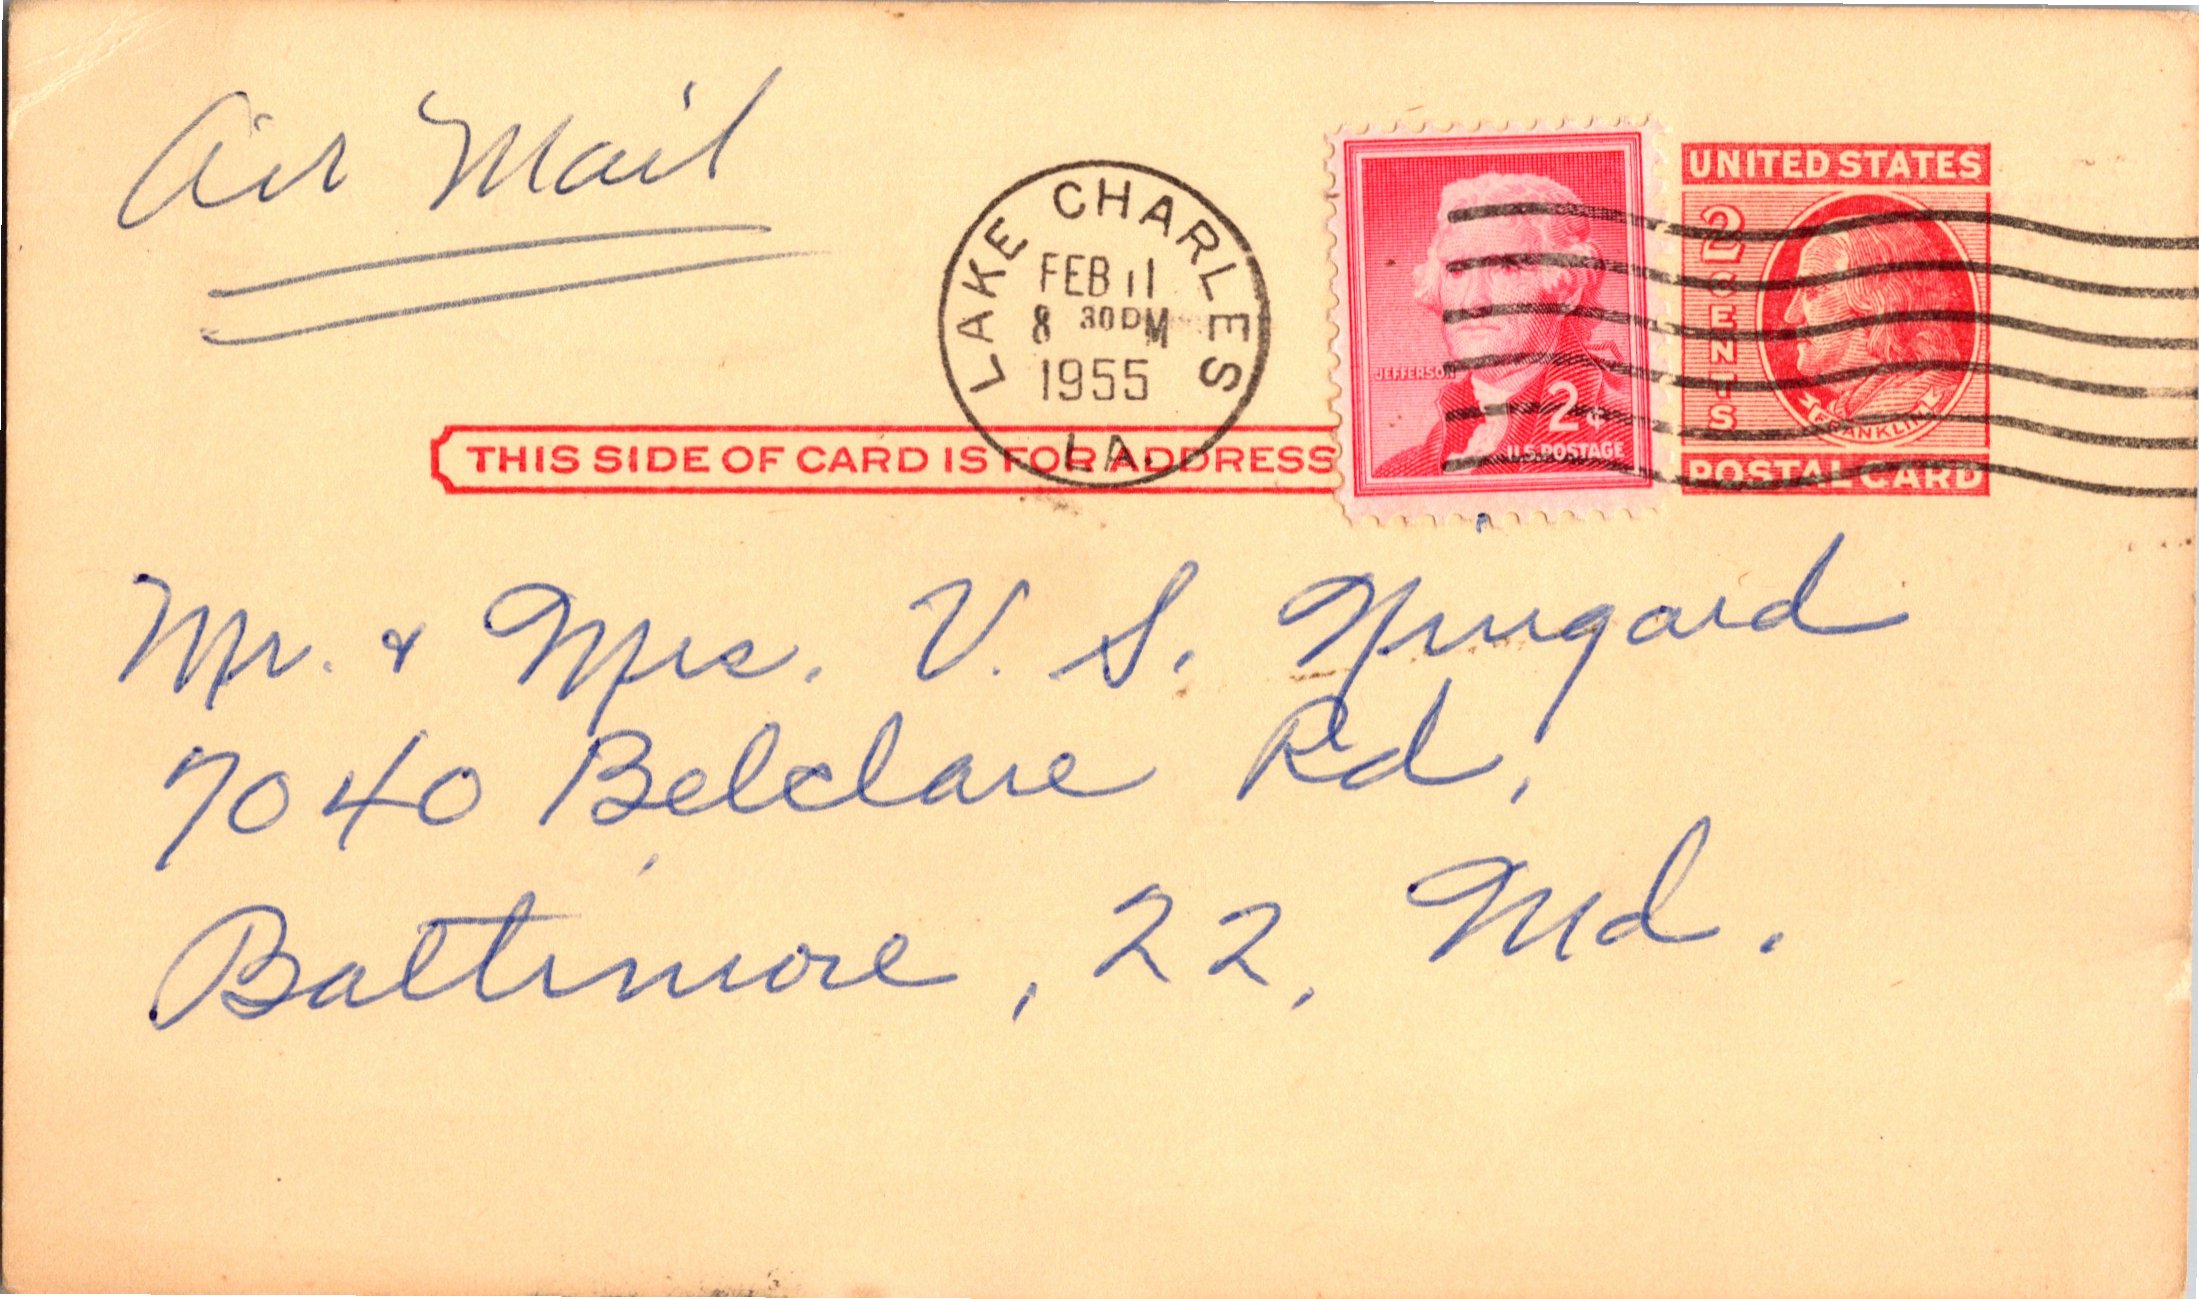 Air Mail
LAKE CHARLES
FEB 11
8 30 PM
1955
LA.
JEFFERSON
2¢
U.S. POSTAGE
UNITED STATES
2 CENTS
FRANKLIN
POSTAL CARD
THIS SIDE OF CARD IS FOR ADDRESS
Mr. & Mrs. V. S.
7040 Belclare Rd,
Baltimore, 22, Md.